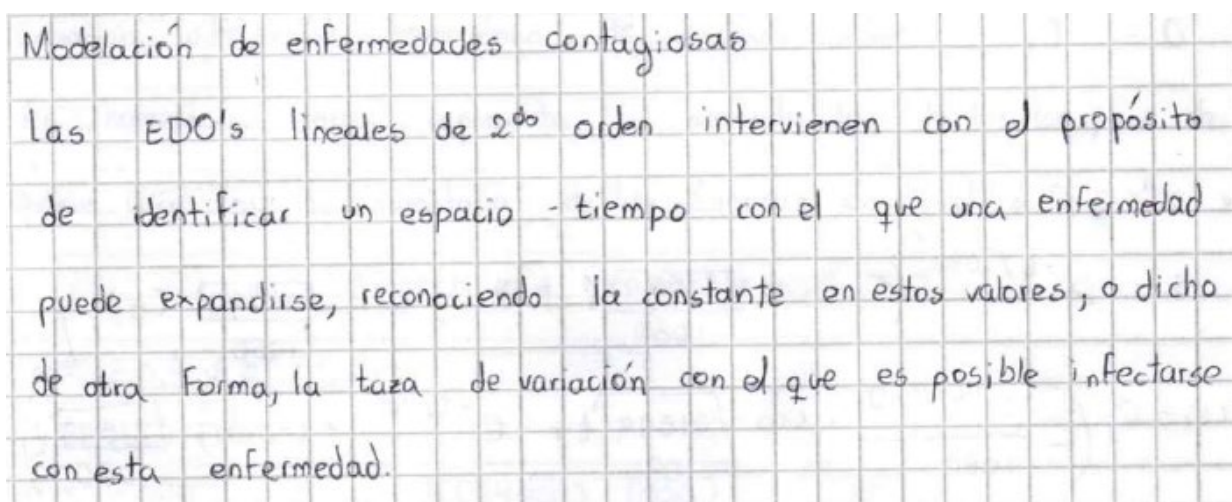 Modelación de enfermedades contagiosas
las EDO's lineales de 2do orden intervienen con el propósito
de identificar un espacio - tiempo con el que una enfermedad
puede expandirse, reconociendo la constante en estos valores, o dicho
de otra forma, la taza de variación con el que es posible infectarse
con esta enfermedad.